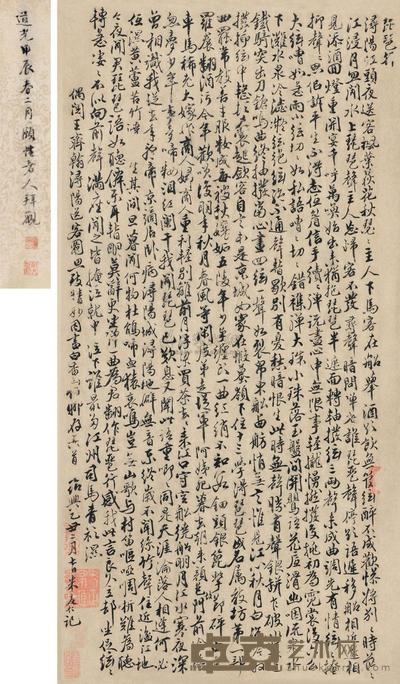 琵琶行
潯陽江頭夜送客楓葉荻花秋瑟々主人下馬客在船舉酒欲飲無管絃醉不成歡慘將別時茫々
江浸月忽聞水上琵琶聲主人忘歸客不發尋聲暗問彈者誰琵琶聲停欲語遲移船相近邀相
見添酒回燈重開宴千呼萬喚始出來猶抱琵琶半遮面轉軸撥絃三兩聲未成曲調先有情絃絃掩
抑聲々思似訴平生不得志低眉信手續々彈說盡心中無限事輕攏慢撚撥復挑初為霓裳後六么
大絃嘈嘈如急雨小絃切々如私語嘈々切々錯雜彈大珠小珠落玉盤間關鶯語花底滑幽咽流泉
下灘水泉冷澀絃凝絕凝絕不通聲暫歇別有幽愁暗恨生此時無聲勝有聲銀缾乍破水漿迸
鐵騎突出刀鎗鳴曲終抽撥當心畫四絃一聲如裂帛東船西舫悄無言惟見江心秋月白沈吟收
撥插絃中整頓衣裳起斂容自言本是京城女家在蝦蟇陵下住十三學得琵琶成名屬教坊第一部
曲罷常教善才服妝成每被秋娘妬五陵年少爭纏頭一曲紅綃不知數鈿頭銀篦擊節碎血色
羅裙翻酒污今年歡笑復明年秋月春風等閒度弟走從軍阿姨死暮去朝來顏色故門前冷落
車馬稀老大嫁作商人婦商人重利輕別離前月浮梁買茶去去來江口守空船繞船明月江水寒夜深
忽夢少年事夢啼妝淚紅闌干我聞琵琶已歎息又聞此語重唧唧同是天涯淪落人相逢何必
曾相識我從去年辭帝京謫居臥病潯陽城潯陽地僻無音樂終歲不聞絲竹聲住近湓江地
低濕黃蘆苦竹繞宅生其間旦暮聞何物杜鵑啼血猿哀鳴豈無山歌與村笛嘔啞嘲哳難為聽
今夜聞君琵琶語如聽仙樂耳暫明莫辭更坐彈一曲為君翻作琵琶行感我此言良久立却坐促絃絃
轉急淒々不似向前聲滿座聞之皆掩泣就中泣下誰最多江州司馬青衫濕
偶閱王齊翰潯陽送客圖
道光甲辰春二月頤性老人拜觀